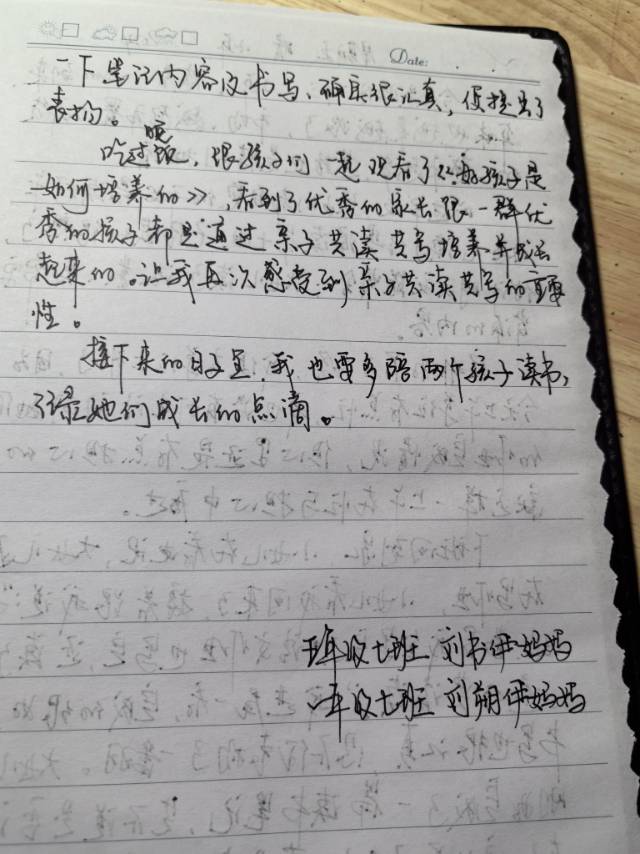 Date:
一下笔记内容及书写、确实很认真,便提出了
表扬。
吃过晚饭,跟孩子们一起观看了《好孩子是
如何培养的》,看到了优秀的家长跟一群优
秀的孩子都是通过亲子共读共写培养并成长
起来的。让我再次感受到亲子共读共写的重要
性。
接下来的日子里,我也要多陪两个孩子读书,
记录她们成长的点滴。
五年级七班 刘书伊妈妈
一年级七班 刘朔伊妈妈